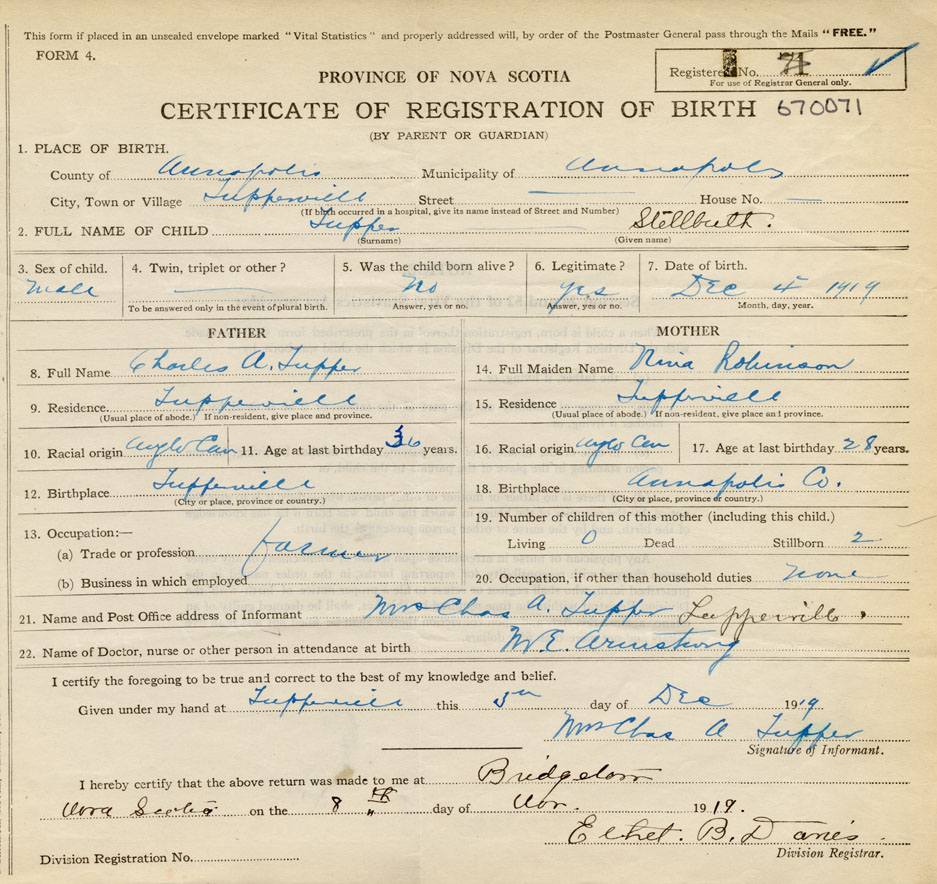 This form if placed in an unsealed envelope marked "Vital Statistics" and properly addressed will, by order of the Postmaster General pass through the Mails "FREE."
FORM 4.
Registered No. 71
For use of Registrar General only.
PROVINCE OF NOVA SCOTIA
CERTIFICATE OF REGISTRATION OF BIRTH 670071
(BY PARENT OR GUARDIAN)
1. PLACE OF BIRTH.
County of Annapolis Municipality of Annapolis
City, Town or Village Tupperville Street — House No. —
(If birth occurred in a hospital, give its name instead of Street and Number)
2. FULL NAME OF CHILD Tupper Stillbirth.
(Surname) (Given name)
3. Sex of child. 4. Twin, triplet or other? 5. Was the child born alive? 6. Legitimate? 7. Date of birth.
Male — No Yes Dec 4 1919
To be answered only in the event of plural birth. Answer, yes or no. Answer, yes or no. Month, day, year.
FATHER MOTHER
8. Full Name Charles A. Tupper 14. Full Maiden Name Nina Robinson
9. Residence Tupperville 15. Residence Tupperville
(Usual place of abode.) If non-resident, give place and province. (Usual place of abode.) If non-resident, give place and province.
10. Racial origin Anglo Can 11. Age at last birthday 36 years. 16. Racial origin Anglo Can 17. Age at last birthday 28 years.
12. Birthplace Tupperville 18. Birthplace Annapolis Co.
(City or place, province or country.) (City or place, province or country.)
13. Occupation:— 19. Number of children of this mother (including this child.)
(a) Trade or profession farmer Living 0 Dead Stillborn 2
(b) Business in which employed 20. Occupation, if other than household duties none
21. Name and Post Office address of Informant Mrs Chas A. Tupper Tupperville.
22. Name of Doctor, nurse or other person in attendance at birth M. E. Armstrong
I certify the foregoing to be true and correct to the best of my knowledge and belief.
Given under my hand at Tupperville this 5th day of Dec 1919
Mrs Chas A Tupper
Signature of Informant.
I hereby certify that the above return was made to me at Bridgetown
Nova Scotia on the 8th day of 1919.
B. Davies
Division Registrar.
Division Registration No.